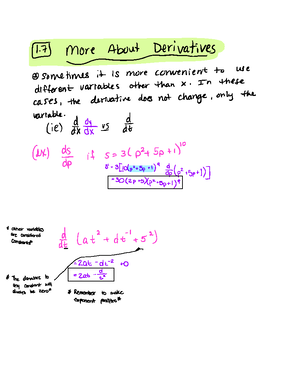 1.7 More About Derivatives
Sometimes it is more convenient to use
different variables other than x. In these
cases, the derivative does not change, only the
variable.
(ie) d/dx dy/dx vs d/dt
(ex) ds/dp if s = 3(p² + 5p + 1)¹⁰
s' = 3[10(p² + 5p + 1)⁹ d/dp (p² + 5p + 1)]
= 30(2p + 5)(p² + 5p + 1)⁹
* other variables
are considered
constants*
d/dt (at² + dt⁻¹ + 5²)
= 2at - dt⁻² + 0
= 2at - d/t²
* The derivative to
any constant will
always be zero*
* Remember to make
exponent positive*